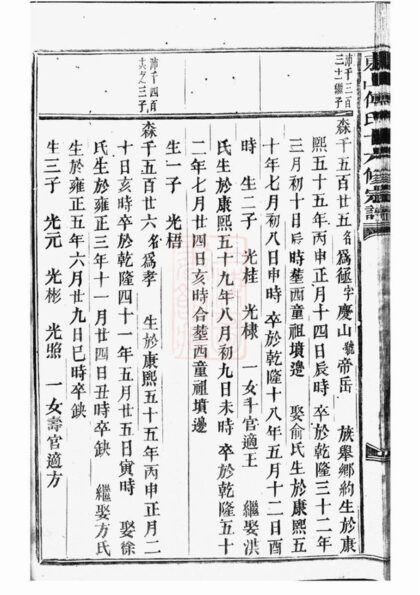 沛千三百
三十繼子
森千五百廿五名爲極字慶山號帝岳 族舉鄉約生於康
熙五十五年丙申正月十四日辰時 卒於乾隆三十二年
三月初十日辰時塟西童祖墳邊 娶俞氏生於康熙五
十年七月初八日申時 卒於乾隆十八年五月十二日酉
時 生二子 光桂 光棣 一女 官適王 繼娶洪
氏生於康熙五十九年八月初九日未時 卒於乾隆五十
二年七月廿四日亥時合塟西童祖墳邊
生一子 光梧
沛千四百
之三子
森千五百廿六名爲孝 生於康熙五十五年丙申正月二
十日亥時卒於乾隆四十一年五月廿五日寅時 娶徐
氏生於雍正三年十一月廿四日丑時卒缺 繼娶方氏
生於雍正五年六月廿九日巳時卒缺
生三子 光元 光彬 光照 一女壽官適方